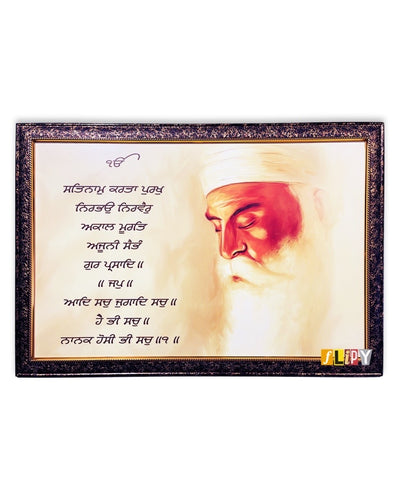 ੴ
ਸਤਿਨਾਮੁ ਕਰਤਾ ਪੁਰਖੁ
ਨਿਰਭਉ ਨਿਰਵੈਰੁ
ਅਕਾਲ ਮੂਰਤਿ
ਅਜੂਨੀ ਸੈਭੰ
ਗੁਰ ਪ੍ਰਸਾਦਿ॥
॥ ਜਪੁ॥
ਆਦਿ ਸਚੁ ਜੁਗਾਦਿ ਸਚੁ॥
ਹੈ ਭੀ ਸਚੁ॥
ਨਾਨਕ ਹੋਸੀ ਭੀ ਸਚੁ॥੧॥
SLiPY